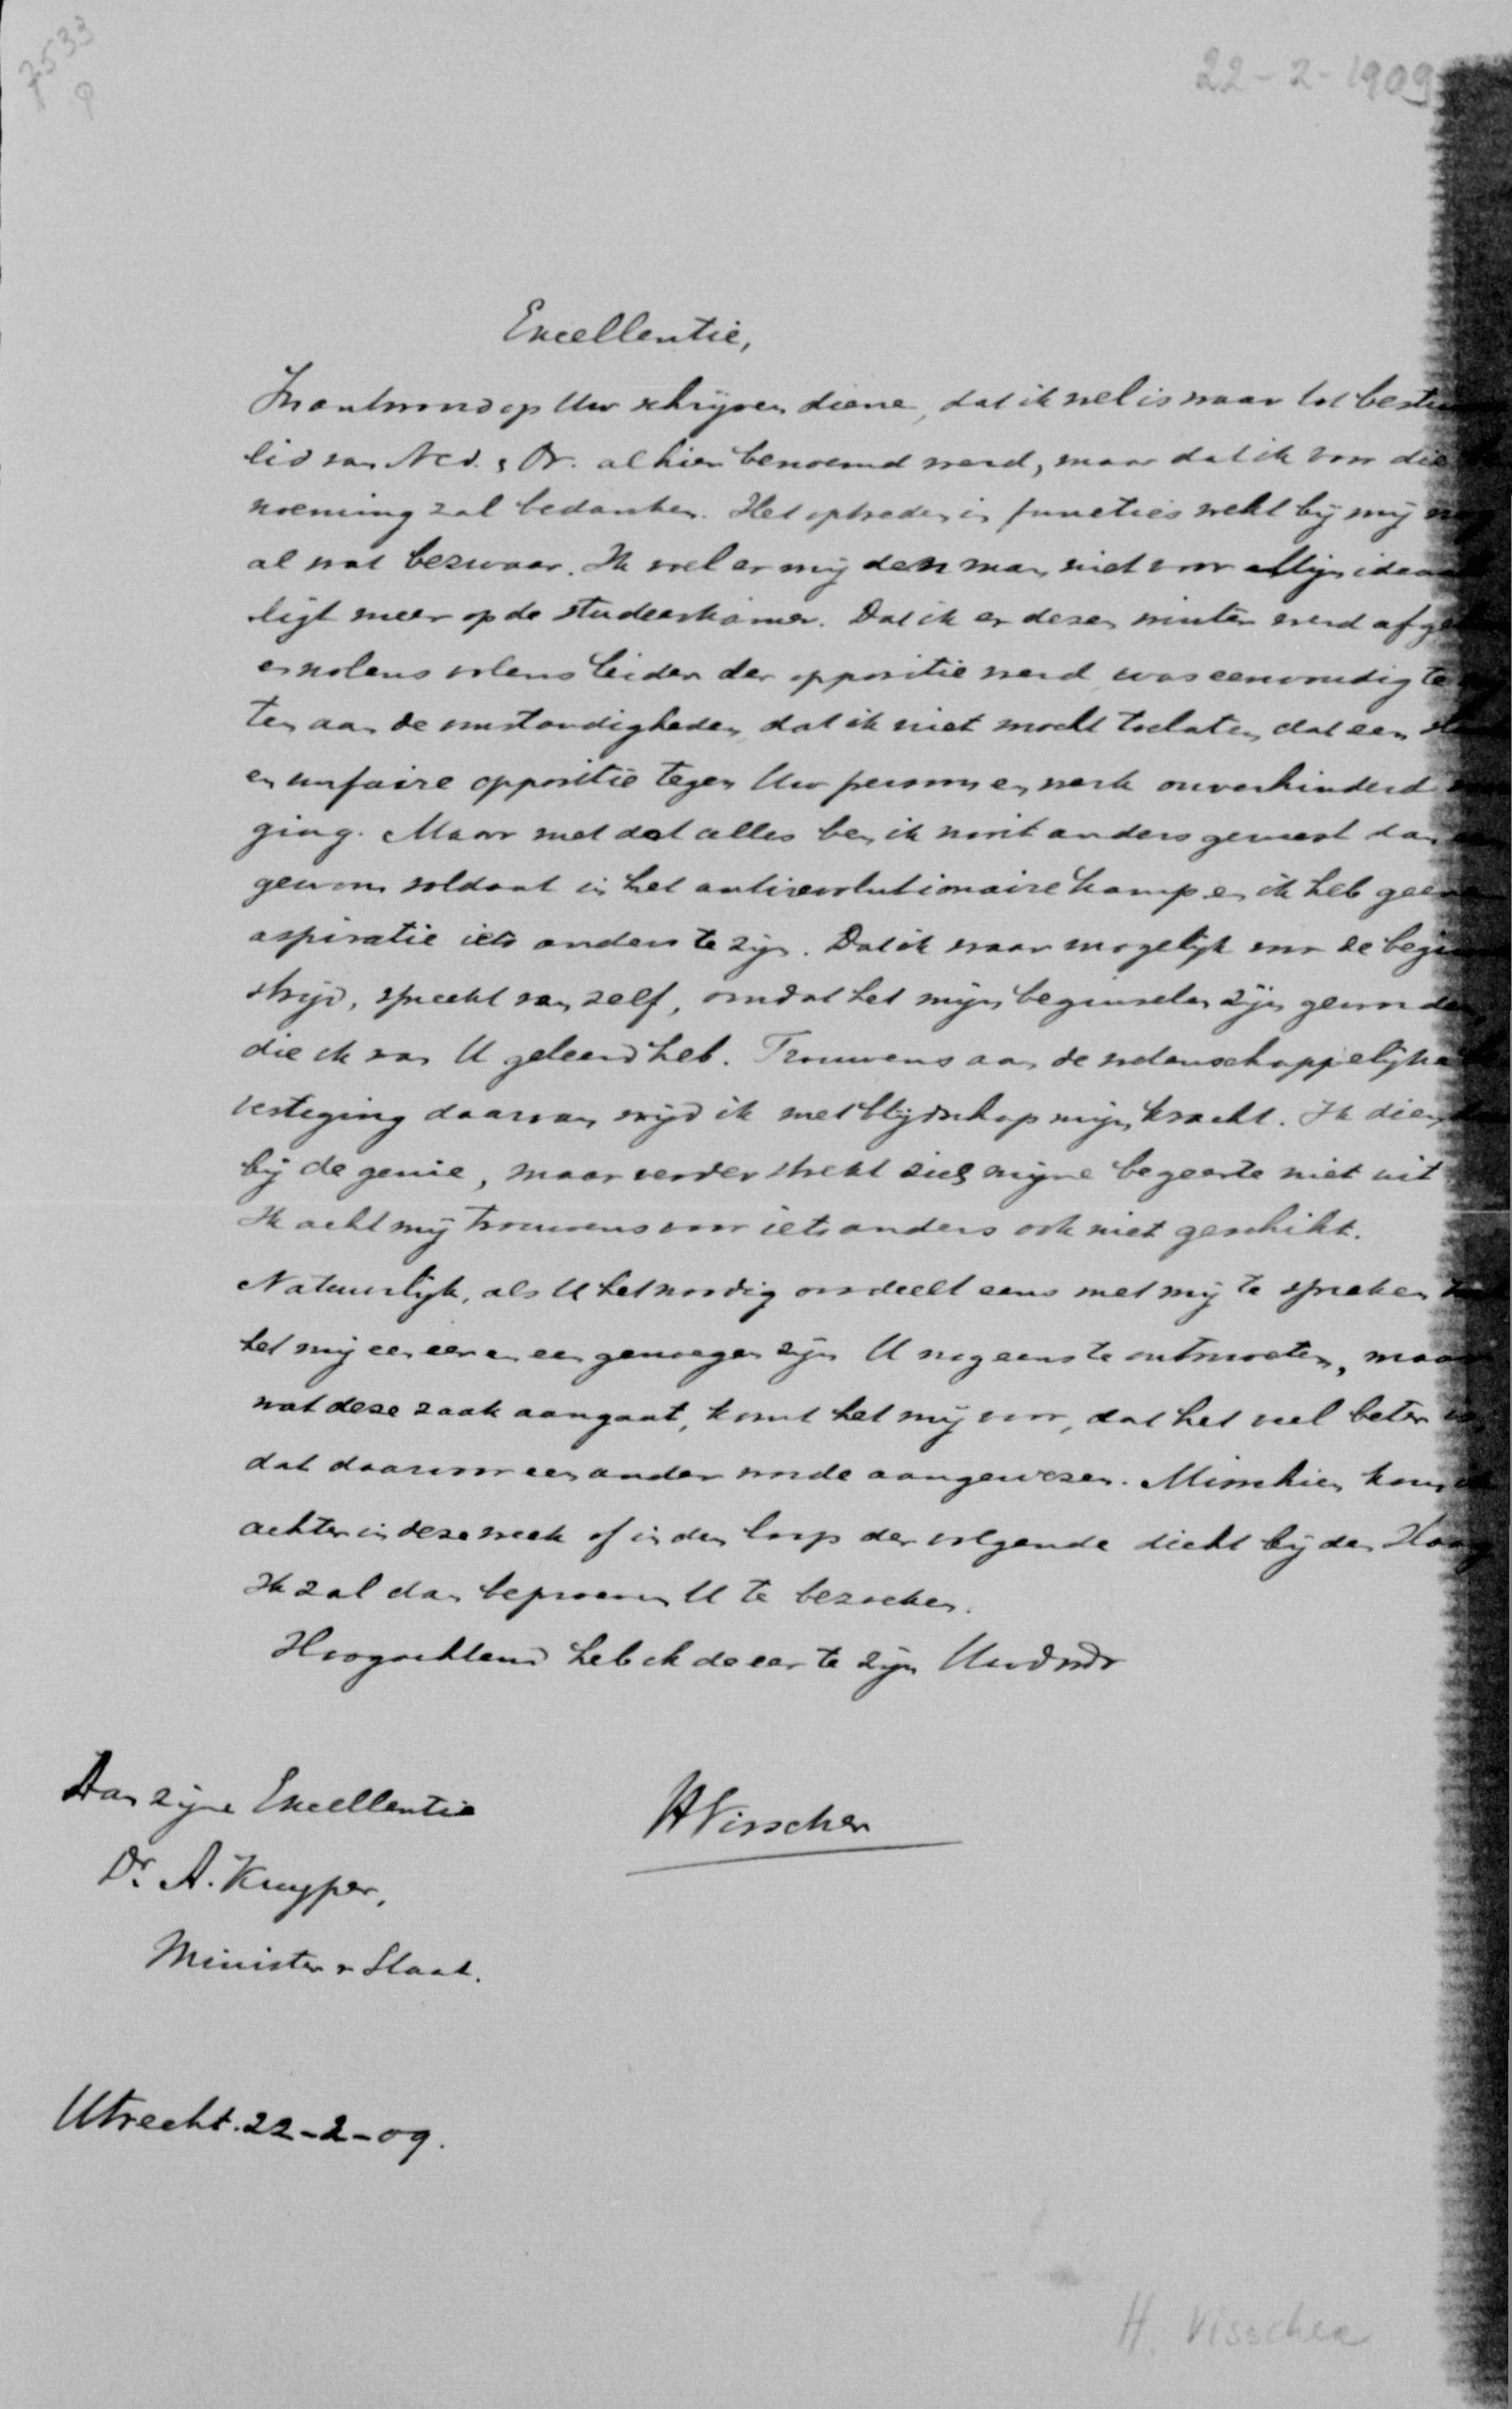 7533
φ
22-2-1909
Excellentie,
In antwoord op Uw schrijven diene, dat ik wel is waar tot bestu
lid van Ned. & Or. alhier benoemd werd, maar dat ik voor die
noeming zal bedanken. Het optreden in functies wekt bij mij
al wat bezwaar. Ik voel er mij den man niet voor. Mijn ideaa
ligt meer op de studeerkamer. Dat ik er dezen winter werd afge
en nolens volens leider der oppositie werd was eenvoudig te
ten aan de omstandigheden, dat ik niet mocht toelaten, dat een
en unfaire oppositie tegen Uw persoon en werk onverhinderd
ging. Maar met dat alles ben ik nooit anders geweest dan
gewoon soldaat in het antirevolutionaire kamp en ik heb geen
aspiratie iets anders te zijn. Dat ik waar mogelijk voor de begin
strijd, spreekt van zelf, omdat het mijn beginselen zijn geworden,
die ik van U geleerd heb. Trouwens aan de wetenschappelijke
vestiging daarvan wijd ik met blijdschap mijn kracht. Ik dien
bij de genie, maar verder strekt zich mijne begeerte niet uit
Ik acht mij trouwens voor iets anders ook niet geschikt.
Natuurlijk, als U het noodig oordeelt eens met mij te spreken
het mij een eer en een genoegen zijn U nog eens te ontmoeten, maar
wat deze zaak aangaat, komt het mij voor, dat het veel beter is,
dat daarvoor een ander worde aangewezen. Misschien kom ik
achter in deze week of in den loop der volgende dicht bij den Haag
Ik zal dan beproeven U te bezoeken.
Hoogachtend heb ik de eer te zijn Uwdwdr
Aan zijne Excellentie
HVisscher
Dr. A. Kuyper,
Minister v Staat.
Utrecht. 22-2-09.
H. Visscher